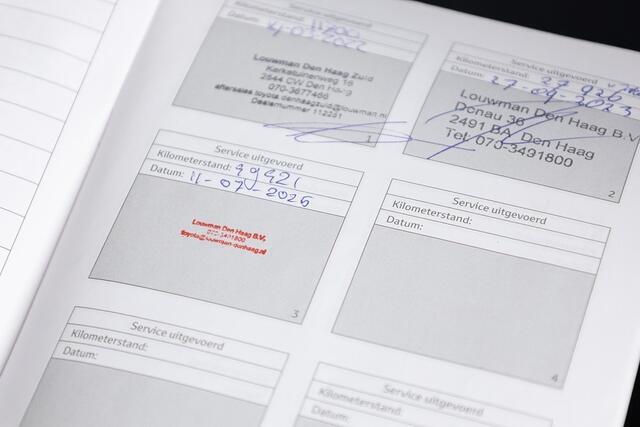 Service uitgevoerd
Kilometerstand:
Datum:
Louwman Den Haag Zuid
Kerketuinenweg 16
2544 CW Den Haag
070-3677466
aftersales.toyota.denhaagzuid@louwman.nl
Dealernummer 112231
1
Service uitgevoerd
Kilometerstand: 27920
Datum: 27-04-2023
Louwman Den Haag B.V.
Donau 36
2491 BA, Den Haag
Tel: 070-3491800
2
Service uitgevoerd
Kilometerstand: 49921
Datum: 11-07-2025
Louwman Den Haag B.V.
070-3491800
toyota@louwman-denhaag.nl
3
Service uitgevoerd
Kilometerstand:
Datum:
4
Service uitgevoerd
Kilometerstand:
Datum:
Service uitgevoerd
Kilometerstand: